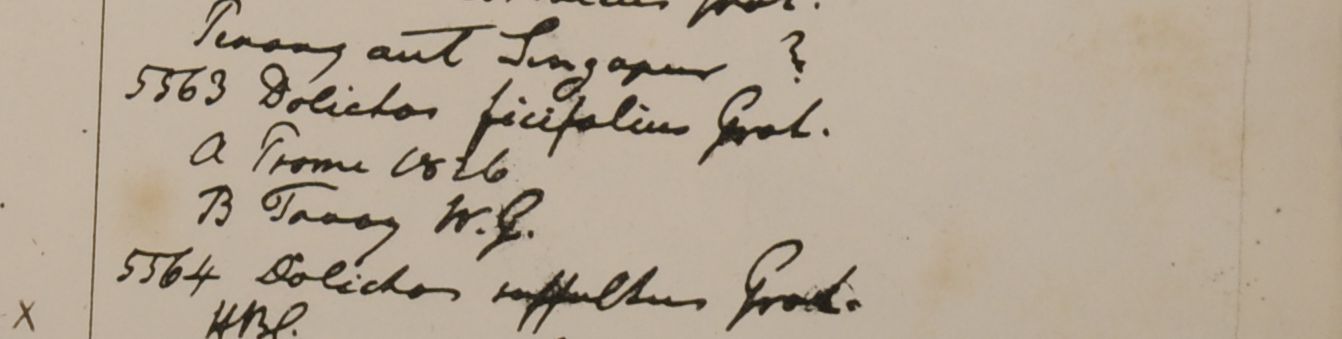 Penang aut Singapur ?
5563 Dolichos ficifolius Grah.
A Prome 1826
B Tavoy W.G.
5564 Dolichos suffultus Grah.
X HBC.